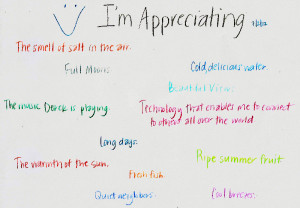 I'm Appreciating
The smell of salt in the air.
Full Moons.
Cold, delicious water.
Beautiful Views.
The music Derek is playing.
Technology that enables me to connect
to others all over the world
Long days.
The warmth of the sun.
Ripe summer fruit
Fresh fish.
Quiet neighbors.
Cool breezes.